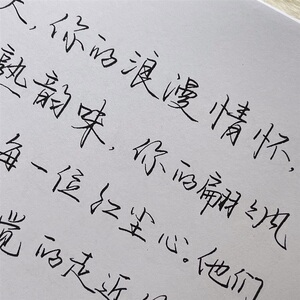 天，你的浪漫情怀，
熟韵味，你的翩翩风
每一位红尘心。他们
觉的走近